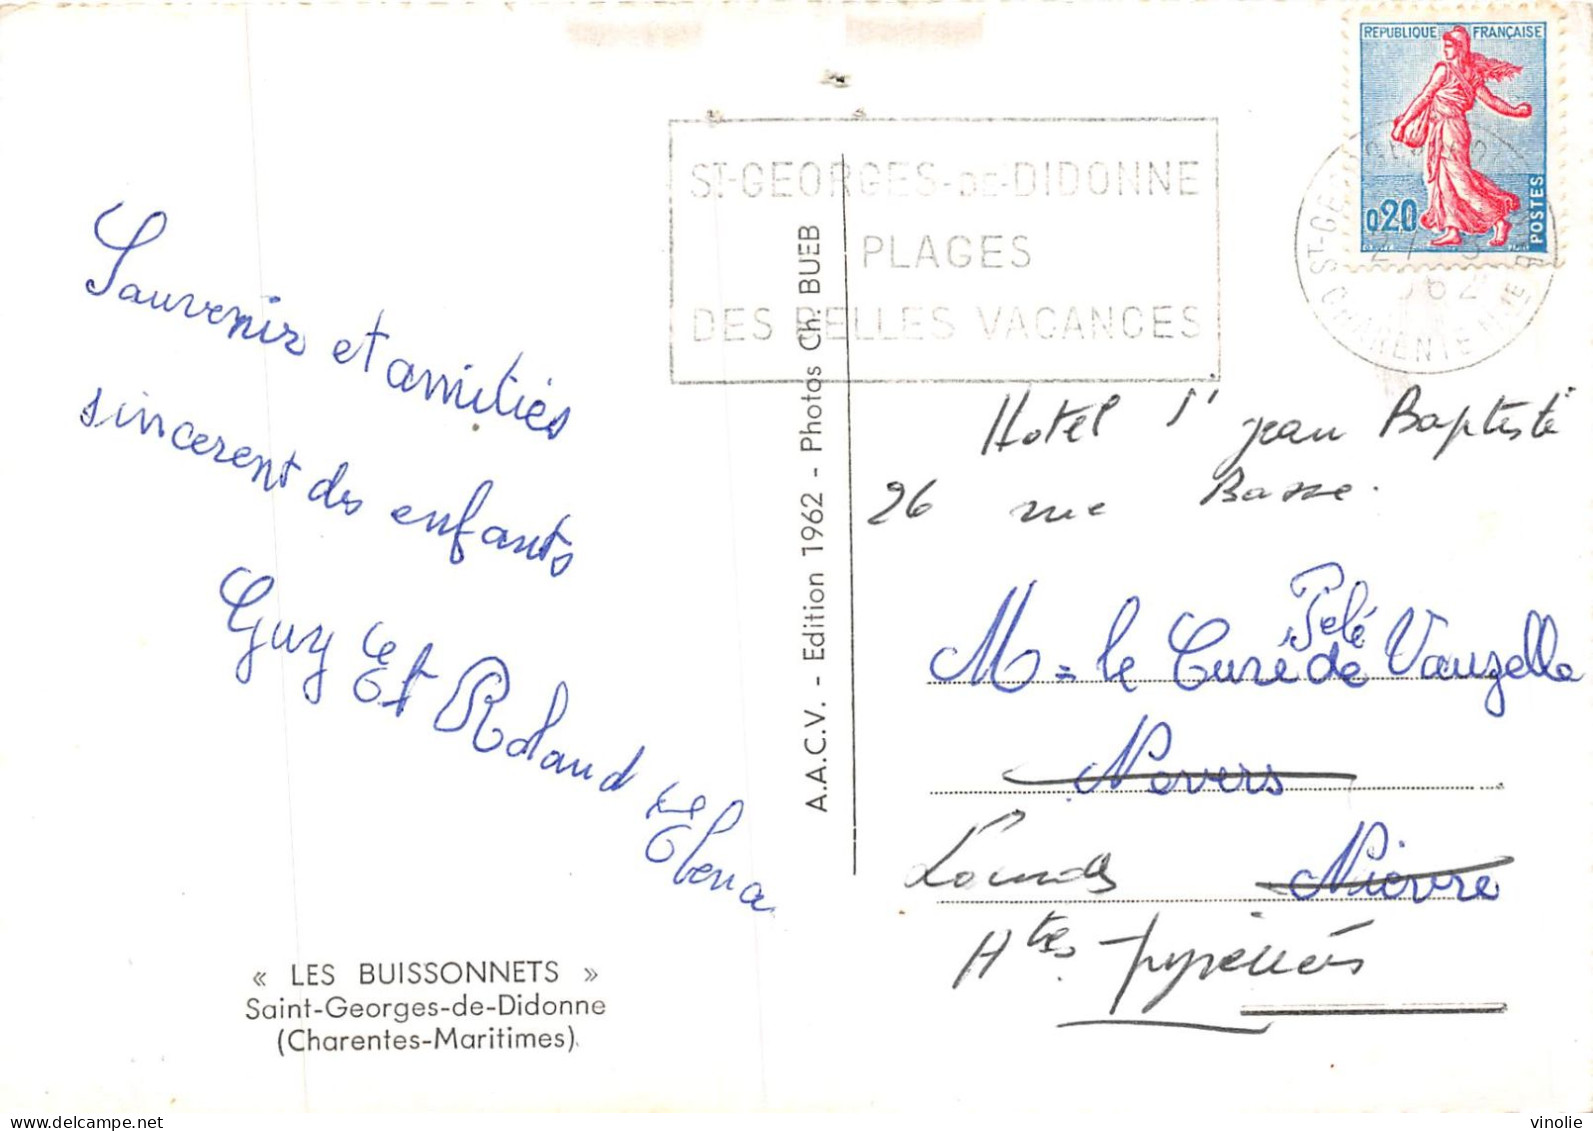 RÉPUBLIQUE FRANÇAISE
0,20
POSTES
ST-GEORGES-DE-DIDONNE
PLAGES
DES BELLES VACANCES
CHARENTE Mme
Souvenir et amitiés
sincerent des enfants
Guy Et Roland
Elena
« LES BUISSONNETS »
Saint-Georges-de-Didonne
(Charentes-Maritimes)
A.A.C.V. - Edition 1962 - Photos Ch. BUEB
Hotel St jean Baptiste
26 rue Basse.
Pelé
M = le Curé de Vauzelle
Nevers
Lourdes Nièvre
Htes pyrénées
vinolie